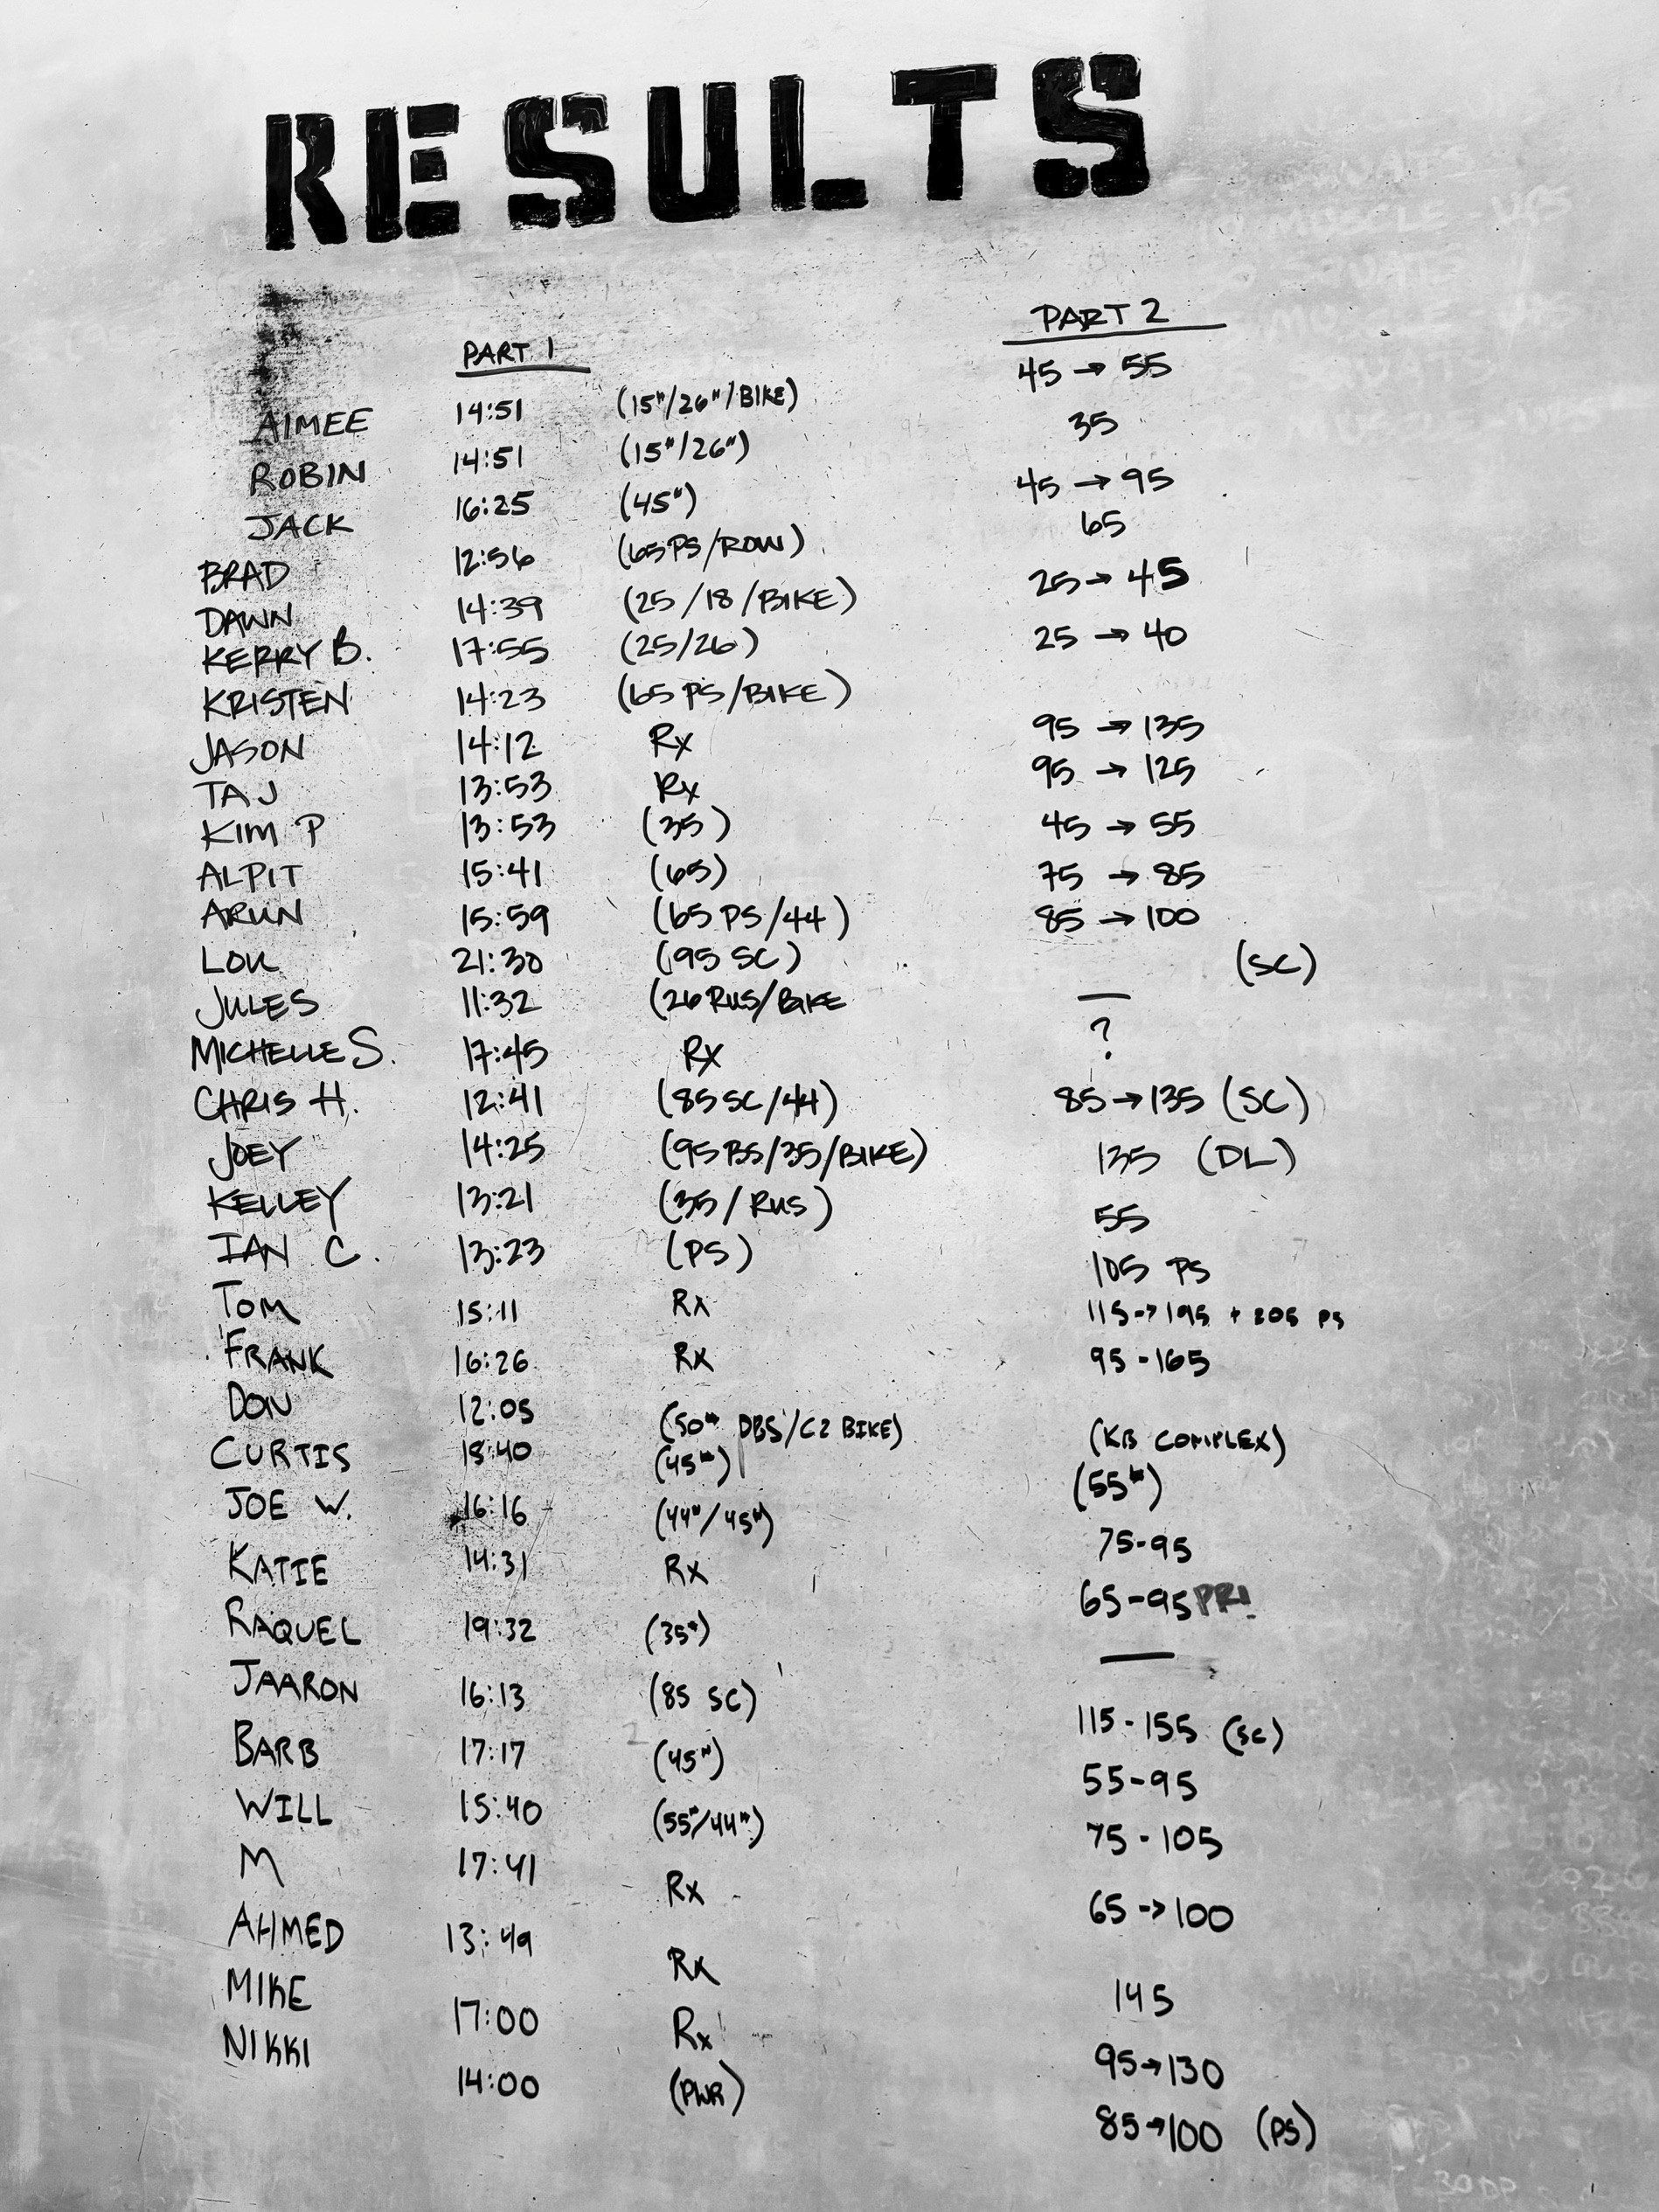 RESULTS
PART 1 PART 2
AIMEE 14:51 (15#/26#/BIKE) 45 → 55
ROBIN 14:51 (15#/26#) 35
JACK 16:25 (45#) 45 → 95
BRAD 12:56 (65 PS/ROW) 65
DAWN 14:39 (25/18/BIKE) 25 → 45
KERRY B. 17:55 (25/26) 25 → 40
KRISTEN 14:23 (65 PS/BIKE)
JASON 14:12 Rx 95 → 135
TAJ 13:53 Rx 95 → 125
KIM P 13:53 (35) 45 → 55
ALPIT 15:41 (65) 75 → 85
ARUN 15:59 (65 PS/44) 85 → 100
LOU 21:30 (95 SC) (SC)
JULES 11:32 (26 RUS/BIKE —
MICHELLE S. 17:45 Rx ?
CHRIS H. 12:41 (85 SC/44) 85→135 (SC)
JOEY 14:25 (95 BS/35/BIKE) 135 (DL)
KELLEY 13:21 (35/RUS) 55
IAN C. 13:23 (PS) 105 PS
TOM 15:11 Rx 115→195 + 205 PS
FRANK 16:26 Rx 95-165
DON 12:05 (50# DBS/C2 BIKE) (KB COMPLEX)
CURTIS 18:40 (45#) (55#)
JOE W. 16:16 (44#/45#) 75-95
KATIE 14:31 Rx 65-95 PR!
RAQUEL 19:32 (35#) —
JAARON 16:13 (85 SC) 115-155 (SC)
BARB 17:17 (45#) 55-95
WILL 15:40 (55#/44#) 75-105
M 17:41 Rx 65→100
AHMED 13:49 Rx 145
MIKE 17:00 Rx 95→130
NIKKI 14:00 (PWR) 85→100 (PS)